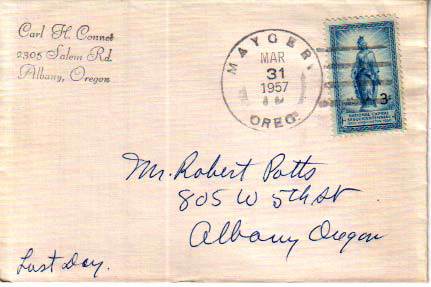 Carl H. Connet
2305 Salem Rd.
Albany, Oregon
MAYGER,
MAR
31
1957
OREG.
3¢
NATIONAL CAPITAL
SESQUICENTENNIAL
Mr. Robert Potts
805 W 5th St
Albany Oregon
Last Day.